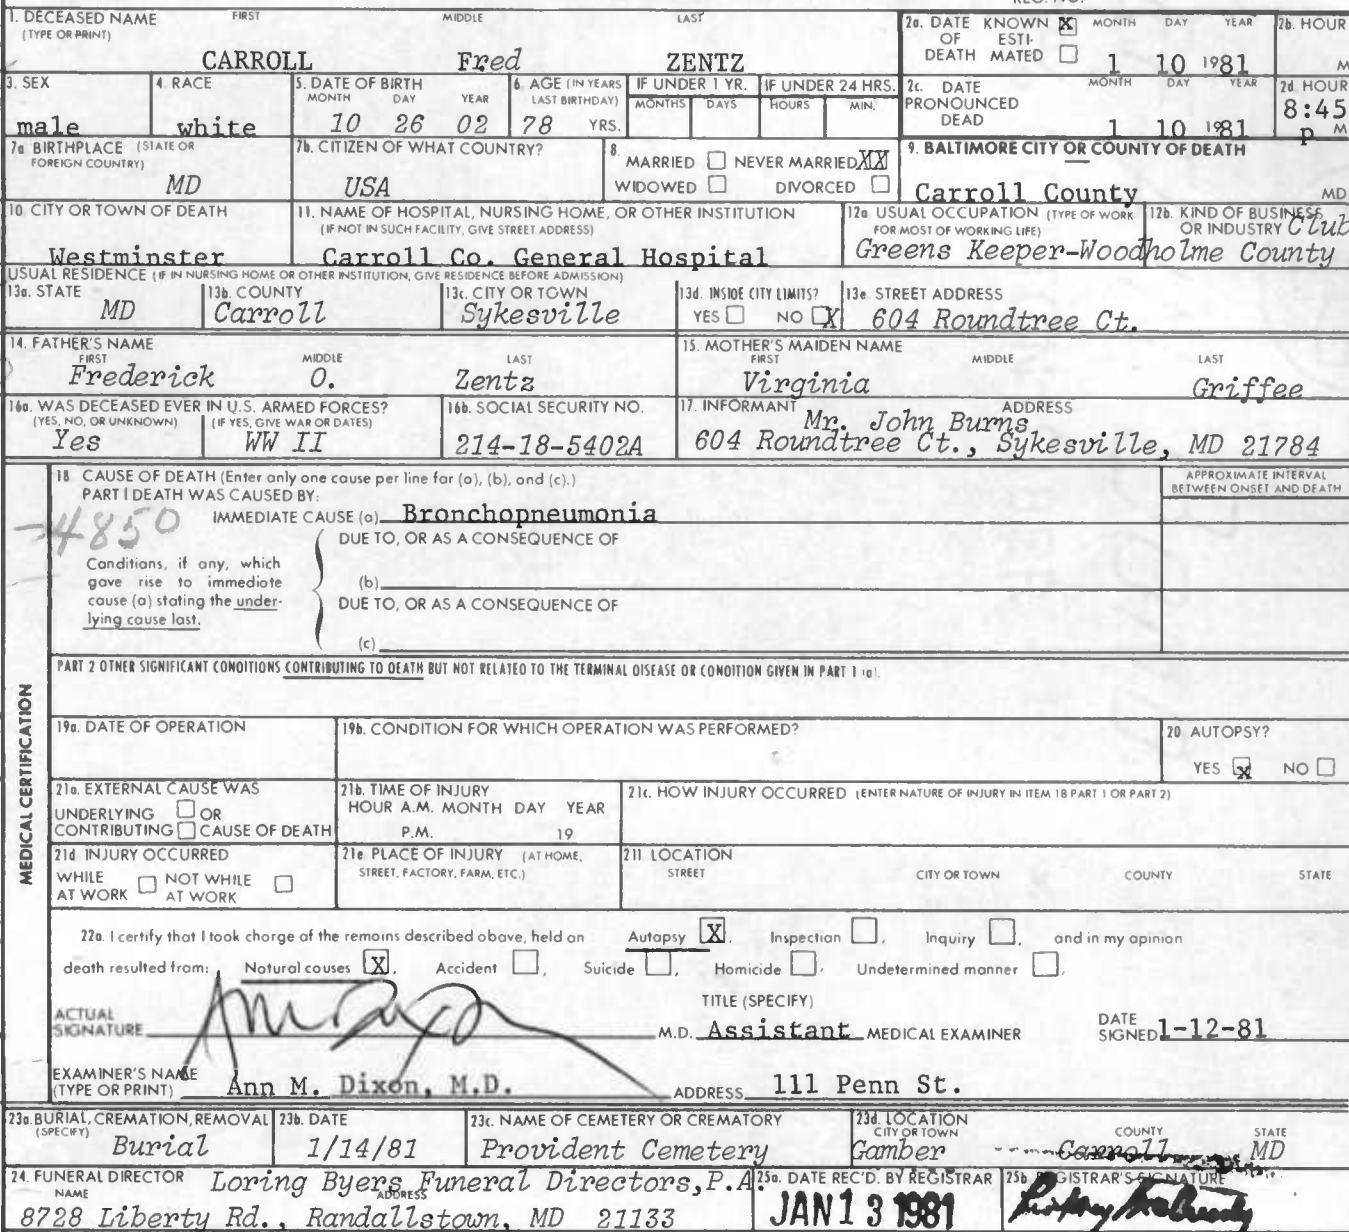 1. DECEASED NAME FIRST MIDDLE LAST
(TYPE OR PRINT)
CARROLL Fred ZENTZ
2a. DATE KNOWN X MONTH DAY YEAR
OF ESTI-
DEATH MATED 1 10 1981
2b. HOUR
M
3. SEX
male
4. RACE
white
5. DATE OF BIRTH
MONTH DAY YEAR
10 26 02
6. AGE (IN YEARS
LAST BIRTHDAY)
78 YRS.
IF UNDER 1 YR.
MONTHS DAYS
IF UNDER 24 HRS.
HOURS MIN.
2c. DATE MONTH DAY YEAR
PRONOUNCED
DEAD 1 10 1981
2d. HOUR
8:45
p M
7a BIRTHPLACE (STATE OR
FOREIGN COUNTRY)
MD
7b. CITIZEN OF WHAT COUNTRY?
USA
8.
MARRIED NEVER MARRIED XX
WIDOWED DIVORCED
9. BALTIMORE CITY OR COUNTY OF DEATH
Carroll County MD
10. CITY OR TOWN OF DEATH
Westminster
11. NAME OF HOSPITAL, NURSING HOME, OR OTHER INSTITUTION
(IF NOT IN SUCH FACILITY, GIVE STREET ADDRESS)
Carroll Co. General Hospital
12a. USUAL OCCUPATION (TYPE OF WORK
FOR MOST OF WORKING LIFE)
12b. KIND OF BUSINESS
OR INDUSTRY Club
Greens Keeper-Woodholme County
USUAL RESIDENCE (IF IN NURSING HOME OR OTHER INSTITUTION, GIVE RESIDENCE BEFORE ADMISSION)
13a. STATE
MD
13b. COUNTY
Carroll
13c. CITY OR TOWN
Sykesville
13d. INSIDE CITY LIMITS?
YES NO X
13e. STREET ADDRESS
604 Roundtree Ct.
14. FATHER'S NAME
FIRST MIDDLE LAST
Frederick O. Zentz
15. MOTHER'S MAIDEN NAME
FIRST MIDDLE LAST
Virginia Griffee
16a. WAS DECEASED EVER IN U.S. ARMED FORCES?
(YES, NO, OR UNKNOWN) (IF YES, GIVE WAR OR DATES)
Yes WW II
16b. SOCIAL SECURITY NO.
214-18-5402A
17. INFORMANT ADDRESS
Mr. John Burns
604 Roundtree Ct., Sykesville, MD 21784
MEDICAL CERTIFICATION
18 CAUSE OF DEATH (Enter only one cause per line for (a), (b), and (c).)
PART I DEATH WAS CAUSED BY:
APPROXIMATE INTERVAL
BETWEEN ONSET AND DEATH
IMMEDIATE CAUSE (a) Bronchopneumonia
4850
DUE TO, OR AS A CONSEQUENCE OF
Conditions, if any, which
gave rise to immediate
cause (a) stating the under-
lying cause last.
(b)
DUE TO, OR AS A CONSEQUENCE OF
(c)
PART 2 OTHER SIGNIFICANT CONDITIONS CONTRIBUTING TO DEATH BUT NOT RELATED TO THE TERMINAL DISEASE OR CONDITION GIVEN IN PART 1 (a).
19a. DATE OF OPERATION
19b. CONDITION FOR WHICH OPERATION WAS PERFORMED?
20 AUTOPSY?
YES X NO
21a. EXTERNAL CAUSE WAS
UNDERLYING OR
CONTRIBUTING CAUSE OF DEATH
21b. TIME OF INJURY
HOUR A.M. MONTH DAY YEAR
P.M. 19
21c. HOW INJURY OCCURRED (ENTER NATURE OF INJURY IN ITEM 18 PART 1 OR PART 2)
21d INJURY OCCURRED
WHILE NOT WHILE
AT WORK AT WORK
21e PLACE OF INJURY (AT HOME,
STREET, FACTORY, FARM, ETC.)
21f. LOCATION
STREET CITY OR TOWN COUNTY STATE
22a. I certify that I took charge of the remains described above, held an Autopsy X, Inspection , Inquiry , and in my opinion
death resulted from: Natural causes X, Accident , Suicide , Homicide , Undetermined manner .
ACTUAL
SIGNATURE
TITLE (SPECIFY)
M.D. Assistant MEDICAL EXAMINER
DATE
SIGNED 1-12-81
EXAMINER'S NAME
(TYPE OR PRINT) Ann M. Dixon, M.D. ADDRESS 111 Penn St.
23a. BURIAL, CREMATION, REMOVAL
(SPECIFY)
Burial
23b. DATE
1/14/81
23c. NAME OF CEMETERY OR CREMATORY
Provident Cemetery
23d. LOCATION
CITY OR TOWN COUNTY STATE
Gamber Carroll MD
24. FUNERAL DIRECTOR
NAME ADDRESS
Loring Byers Funeral Directors, P.A.
8728 Liberty Rd., Randallstown, MD 21133
25a. DATE REC'D. BY REGISTRAR
JAN 13 1981
25b. REGISTRAR'S SIGNATURE